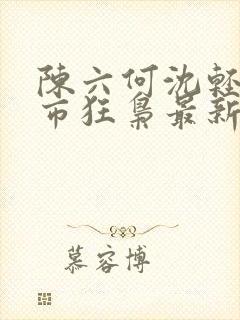 陳六何沈輕
市狂梟最新
慕容博